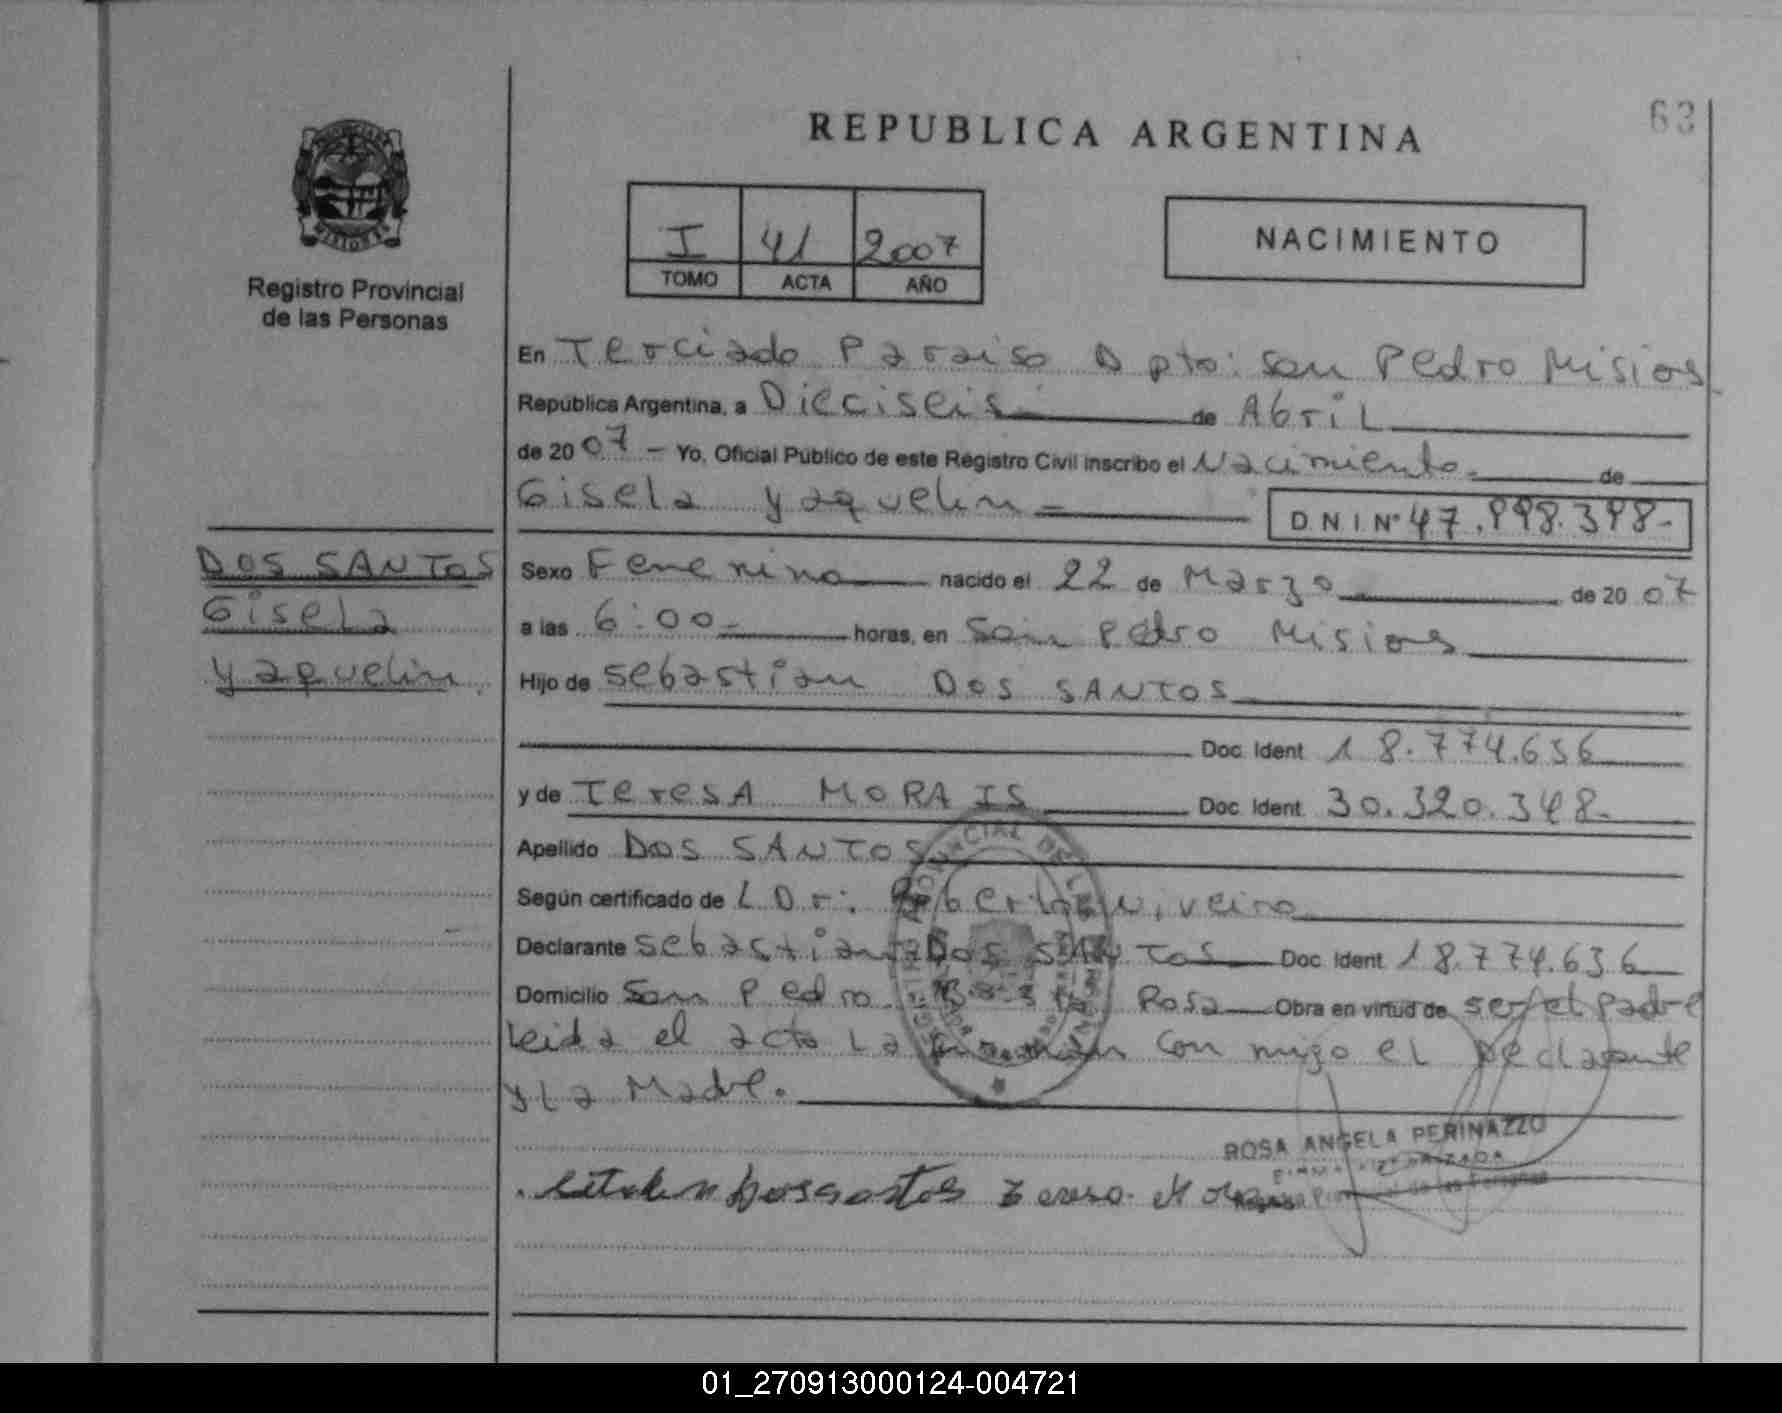 63
REPUBLICA ARGENTINA
I 41 2007
TOMO ACTA AÑO
NACIMIENTO
MISIONES
Registro Provincial
de las Personas
DOS SANTOS
Gisela
Yaquelin.
En Terciado Paraiso Dpto: San Pedro Misiones
República Argentina, a Dieciseis de Abril
de 2007 - Yo, Oficial Público de este Registro Civil inscribo el Nacimiento de
Gisela Yaquelin
D N I Nº 47.998.398-
Sexo Femenino nacido el 22 de Marzo de 2007
a las 6:00 horas, en San Pedro Misiones
Hijo de Sebastian DOS SANTOS
Doc. Ident. 18.774.636
y de Teresa MORAIS Doc. Ident. 30.320.348.
Apellido DOS SANTOS
Según certificado de L Dr: Niveiro
Declarante Sebastian Dos SANTOS Doc Ident. 18.774.636
Domicilio San Pedro Rosa Obra en virtud de ser el padre
Leida el acta La con migo el Declarante
y La Madre.
ROSA ANGELA PERINAZZO
01_270913000124-004721